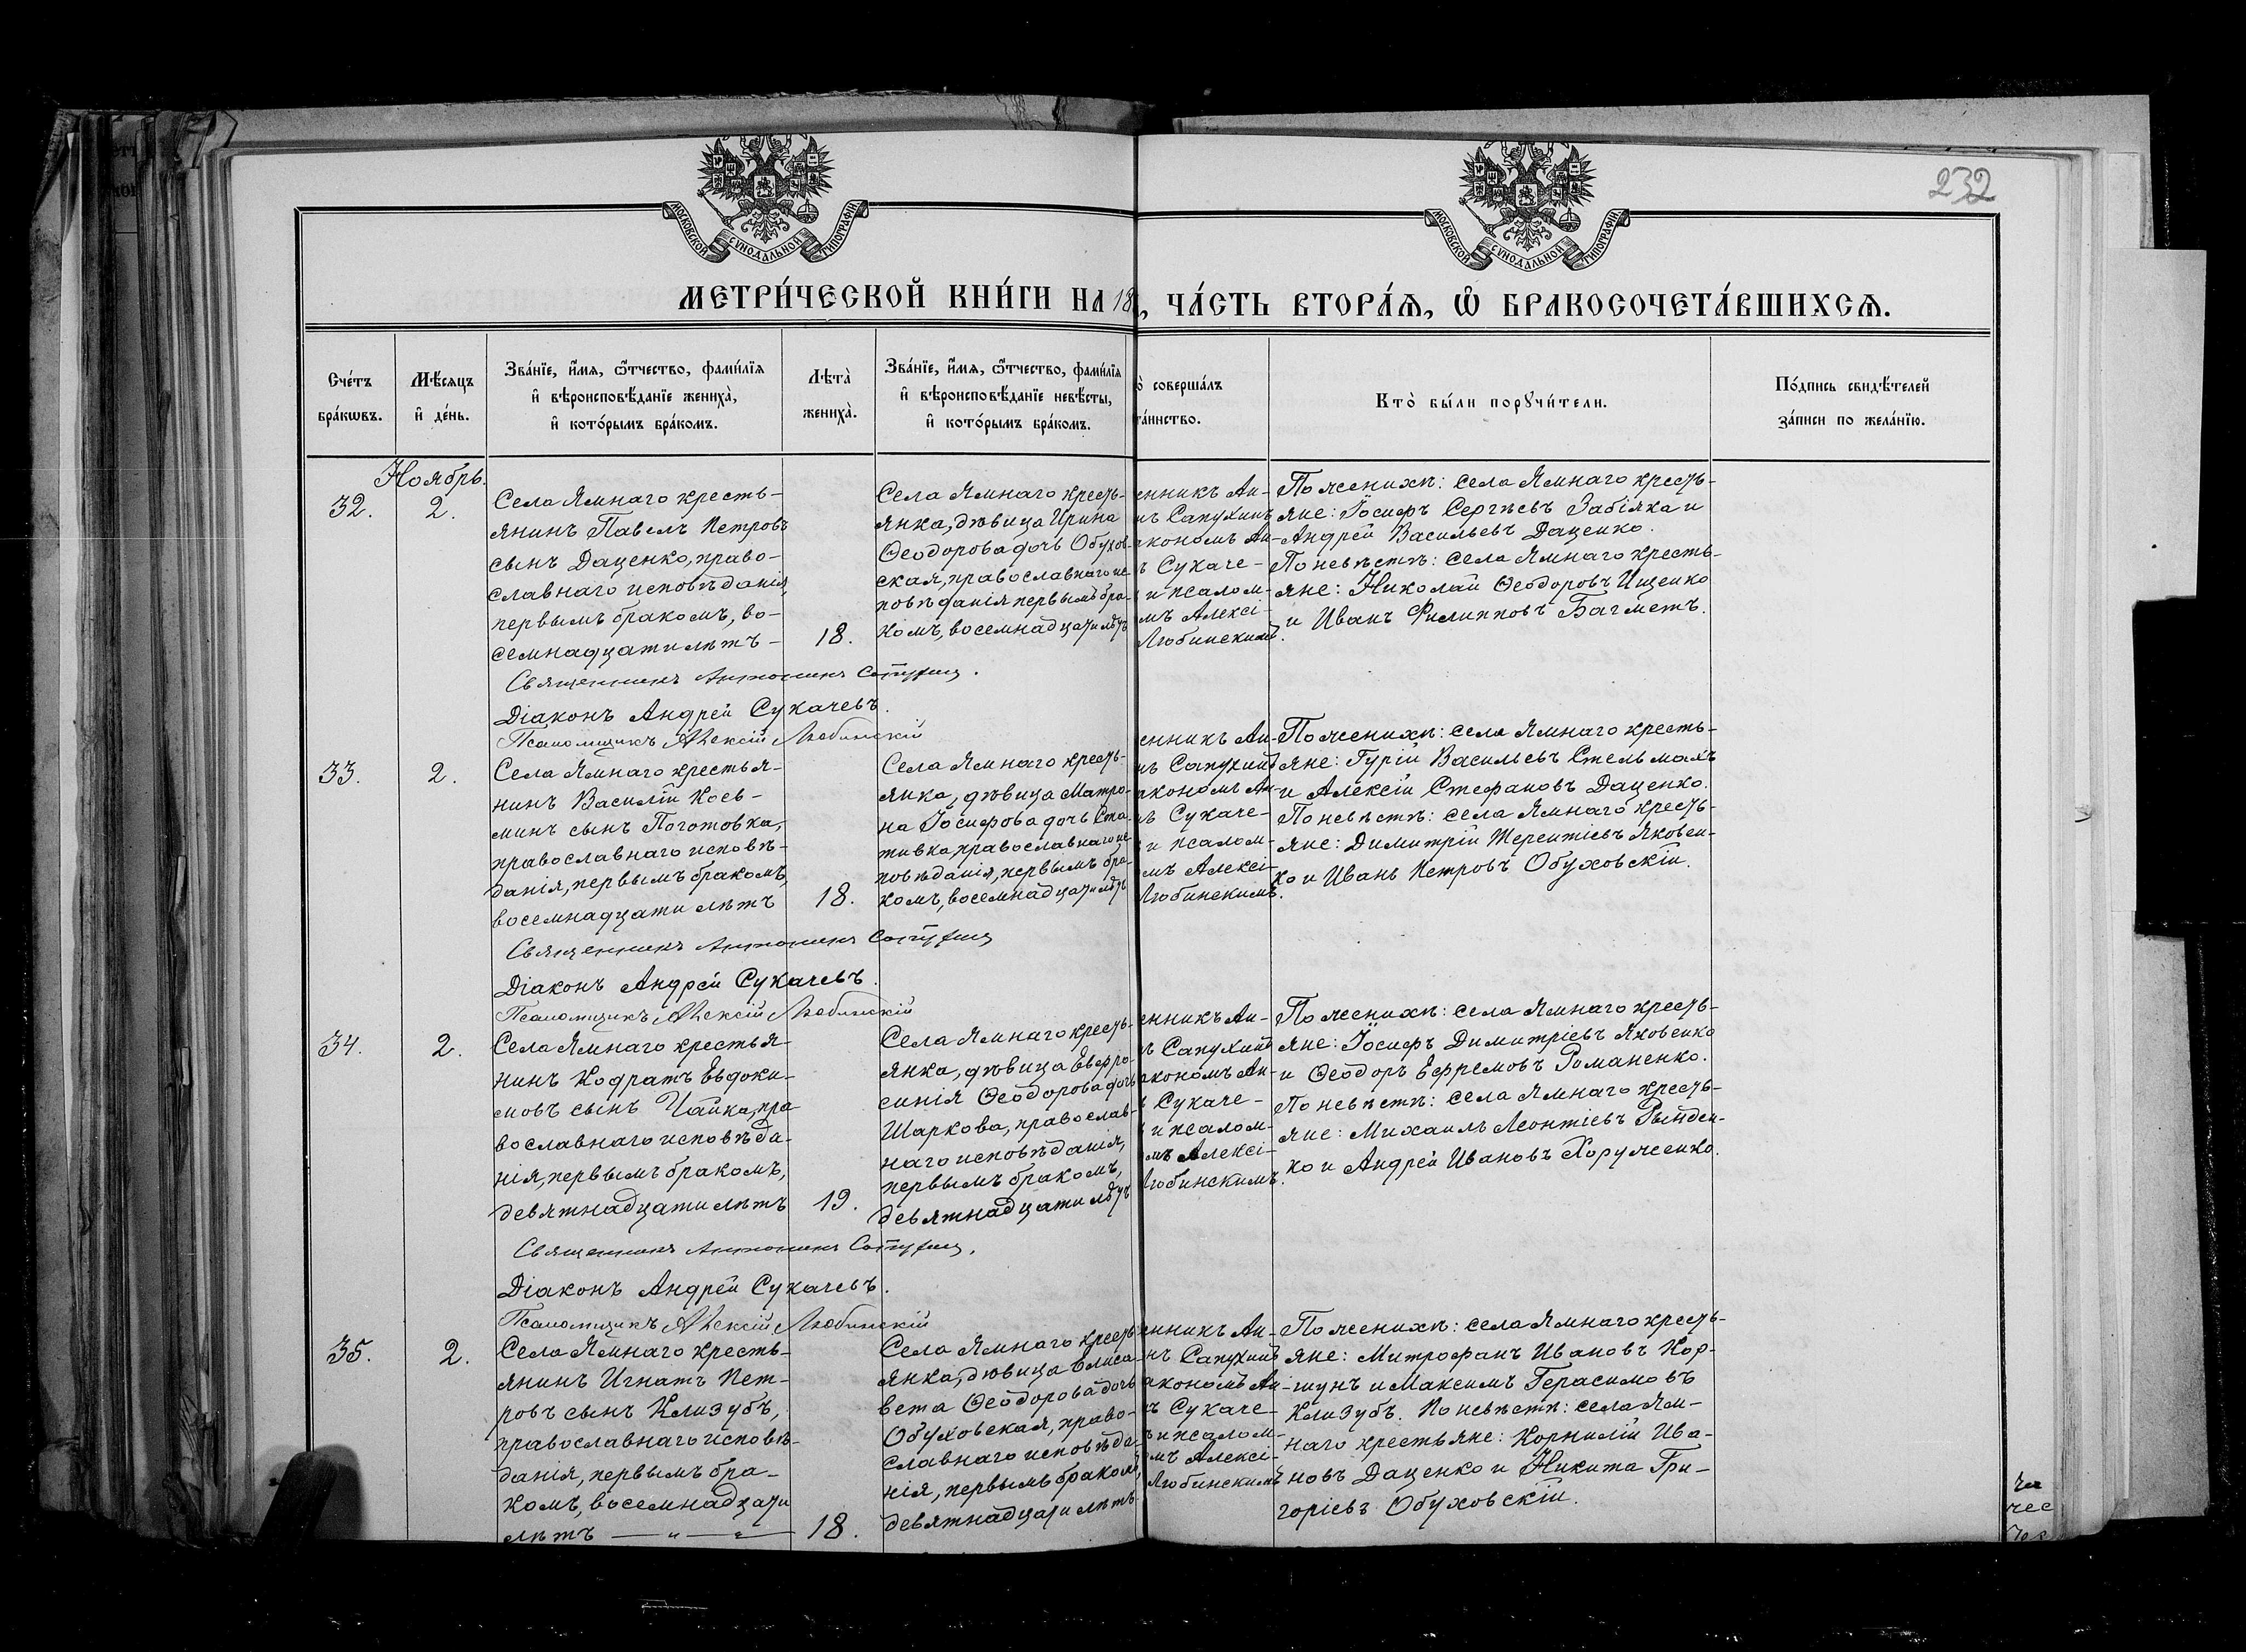 232
МОСКОВСКОЙ СѴНОДАЛЬНОЙ ТИПОГРАФІИ
МОСКОВСКОЙ СѴНОДАЛЬНОЙ ТИПОГРАФІИ
МЕТРИ́ЧЕСКОЙ КНИ́ГИ НА 18
, ЧА́СТЬ ВТОРА́Ѧ, Ѽ БРАКОСОЧЕТА́ВШИХСѦ.
Сче́тъ бра́кѡвъ.
Мѣ́сѧцъ и҆ де́нь.
Зва́нїе, и҆́мѧ, ѻ҆́тчество, фами́лїѧ
и҆ вѣроисповѣ́данїе жениха̀,
и҆ кото́рымъ бра́комъ.
Лѣта̀ жениха̀.
Зва́нїе, и҆́мѧ, ѻ҆́тчество, фами́лїѧ
и҆ вѣроисповѣ́данїе невѣ́сты,
и҆ кото́рымъ бра́комъ.
о̀ соверша́лъ
та́инство.
Кто̀ бы́ли порꙋчи́тели.
По́дпись свидѣ́телей
за́писи по жела́нїю.
Ноябрь.
32.
2.
Села Ямнаго кресть-
янинъ Павелъ Петровъ
сынъ Даценко, право-
славнаго исповѣданія,
первымъ бракомъ, во-
семнадцати лѣтъ -
18.
Села Ямнаго кресть-
янка, дѣвица Ирина
Ѳеодорова дочь Обухов-
ская, православнаго ис-
повѣданія первымъ бра-
комъ, восемнадцати лѣтъ
енникъ Ан-
нъ Сапухинъ
акономъ Ан-
ъ Сукаче-
и псалом-
мъ Алексі-
Любинскимъ.
По женихѣ: села Ямнаго кресть-
яне: Іосифъ Сергѣевъ Забіяка и
Андрей Васильевъ Даценко.
По невѣстѣ: села Ямнаго кресть-
яне: Николай Ѳеодоровъ Ищенко
и Иванъ Филипповъ Багметъ.
Священникъ Антонинъ Сапухинъ.
Діаконъ Андрей Сукачевъ.
Псаломщикъ Алексій Любинскій
33.
2.
Села Ямнаго крестья-
нинъ Василій Кось-
минъ сынъ Поготовка,
православнаго исповѣ-
данія, первымъ бракомъ,
восемнадцати лѣтъ
18.
Села Ямнаго кресть-
янка, дѣвица Матро-
на Іосифова дочь Ста-
тивка православнаго ис-
повѣданія, первымъ бра-
комъ, восемнадцати лѣтъ
енникъ Ан-
нъ Сапухинъ
акономъ Ан-
ъ Сукаче-
и псалом-
омъ Алексі-
Любинскимъ.
По женихѣ: села Ямнаго кресть-
яне: Гурій Васильевъ Стельмахъ
и Алексій Стефановъ Даценко.
По невѣстѣ: села Ямнаго кресть-
яне: Димитрій Терентіевъ Яковен-
ко и Иванъ Петровъ Обуховскій.
Священникъ Антонинъ Сапухинъ
Діаконъ Андрей Сукачевъ.
Псаломщикъ Алексій Любинскій
34.
2.
Села Ямнаго крестья-
нинъ Кодратъ Евдоки-
мовъ сынъ Чайка, пра-
вославнаго исповѣда-
нія, первымъ бракомъ,
девятнадцати лѣтъ
19.
Села Ямнаго кресть-
янка, дѣвица Евфро-
синія Ѳеодорова дочь
Шаркова, православ-
наго исповѣданія,
первымъ бракомъ,
девятнадцати лѣтъ
енникъ Ан-
ъ Сапухинъ
акономъ Ан-
ъ Сукаче-
ъ и псалом-
омъ Алексі-
Любинскимъ.
По женихѣ: села Ямнаго кресть-
яне: Іосифъ Димитріевъ Яковенко
и Ѳеодоръ Ефремовъ Романенко.
По невѣстѣ: села Ямнаго кресть-
яне: Михаилъ Леонтіевъ Рынден-
ко и Андрей Ивановъ Хоруженко.
Священникъ Антонинъ Сапухинъ.
Діаконъ Андрей Сукачевъ.
Псаломщикъ Алексій Любинскій
35.
2.
Села Ямнаго кресть-
янинъ Игнатъ Пет-
ровъ сынъ Клизубъ,
православнаго исповѣ-
данія, первымъ бра-
комъ, восемнадцати
лѣтъ
18.
Села Ямнаго кресть-
янка, дѣвица Елиса-
вета Ѳеодорова дочь
Обуховская, право-
славнаго исповѣда-
нія, первымъ бракомъ,
девятнадцати лѣтъ
енникъ Ан-
нъ Сапухинъ
акономъ Ан-
ъ Сукаче-
ъ и псалом-
омъ Алексі-
Любинскимъ
По женихѣ: села Ямнаго кресть-
яне: Митрофанъ Ивановъ Кор-
шунъ и Максимъ Герасимовъ
Клизубъ. По невѣстѣ: села Ям-
наго крестьяне: Корнилій Ива-
новъ Даценко и Никита Гри-
горіевъ Обуховскій.
чес